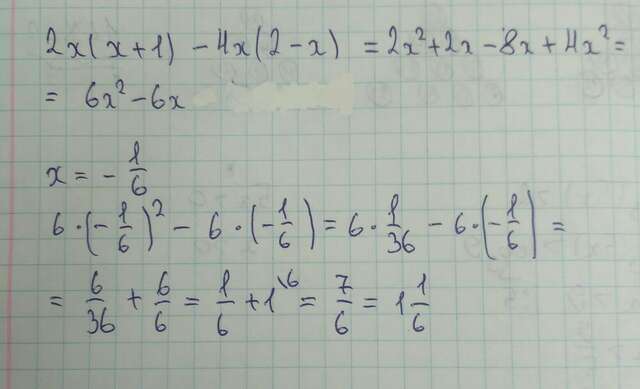 2x(x+1) - 4x(2-x) = 2x²+2x-8x+4x² =
= 6x²-6x
x = - 1/6
6·(-1/6)² - 6·(-1/6) = 6·1/36 - 6·(-1/6) =
= 6/36 + 6/6 = 1/6 + 1\6 = 7/6 = 1 1/6